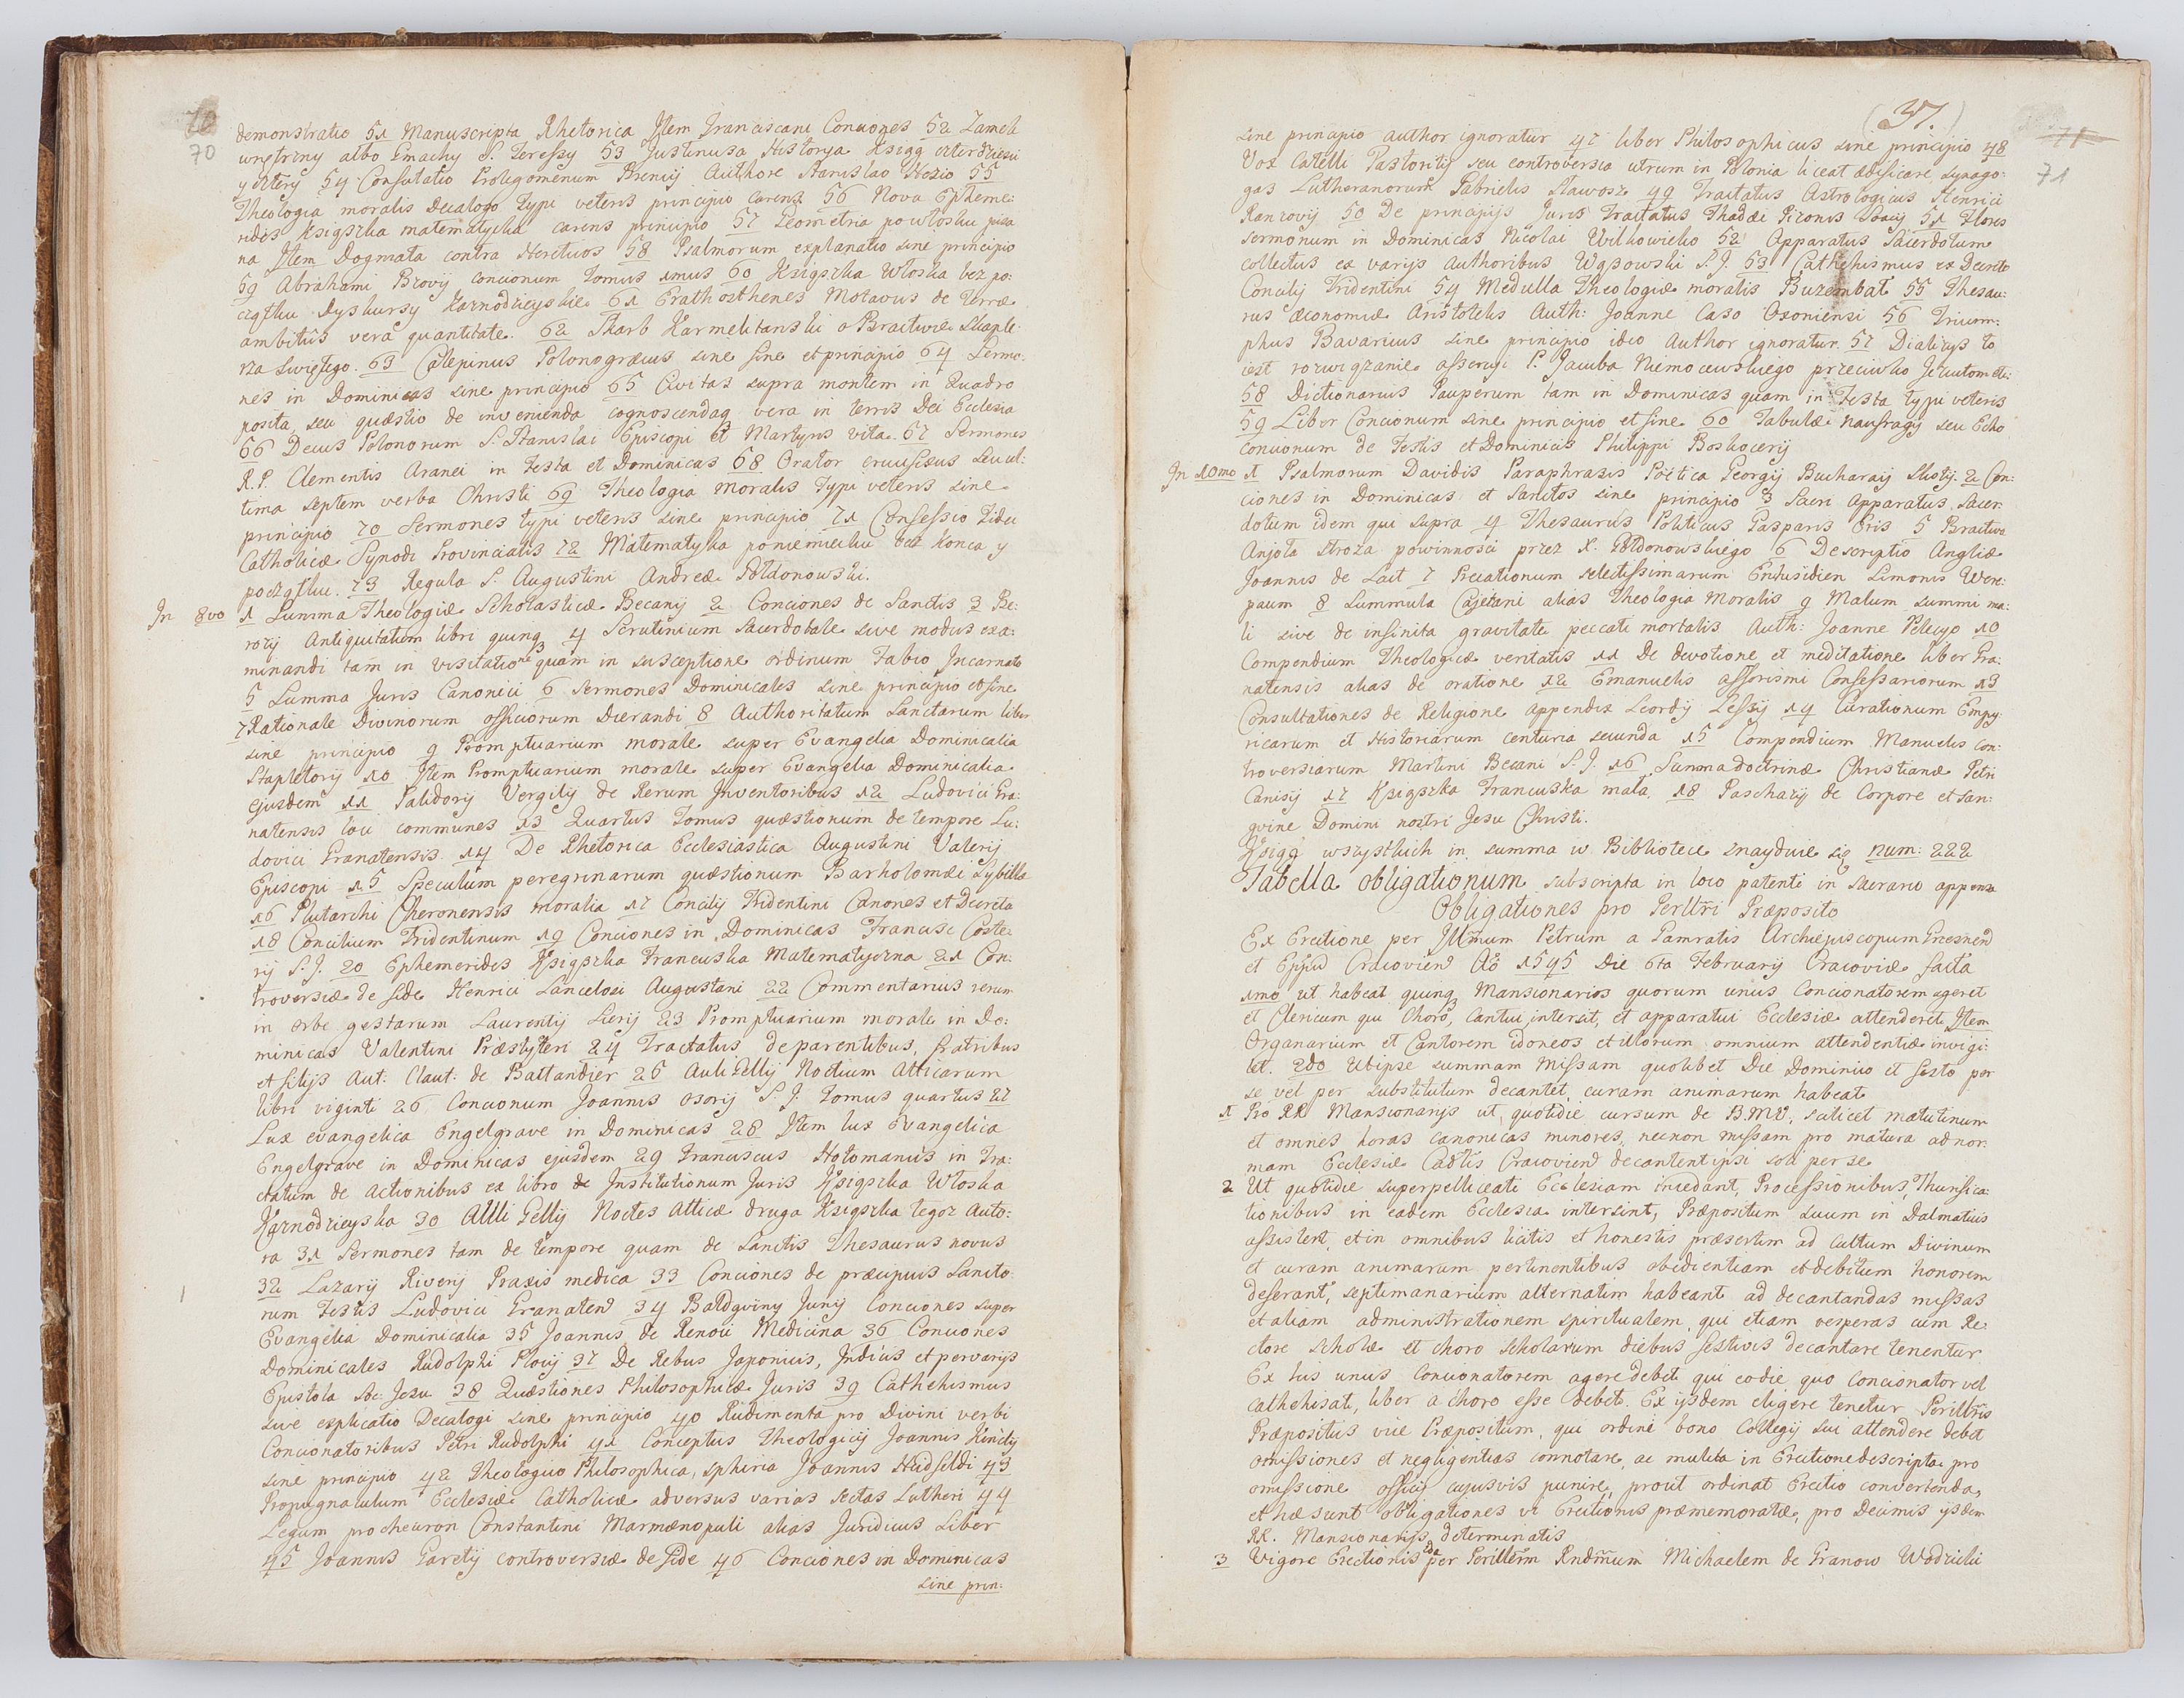 70
70
demonstratio 51 Manuscripta Rhetorica Item Franciscani Conciones 52 Zamek
wnętrzny albo Gmachy S. Teressy 53 Justinusa Historya Ksiąg czterdziesci
y cztery 54 Confutatio Prolegomenum Brenij Authore Stanislao Hozio 55
Theologia moralis Decalogo typi veteris principio carens 56 Nova Epheme:
rides Ksiąszka matematycka carens principio 57 Geometria po włosku pisa
na Item Dogmata contra 58 Psalmorum explanatio sine principio
59 Abrahami Brovij concionum tomus 1mus 60 Xsiąszka Włoska bez po:
czątku dyskursy kaznodzieyskie 61 Erathosthenes Motavus de terræ
ambitûs vera quantitate. 62 Skarb Karmelitanski o Bractwie Szkaple:
rza swiętego. 63 Calepinus Polonogræcus sine fine et principio 64 Sermo:
nes in Dominicas sine principio 65 Civitas supra montem in Quadro
posita, seu quæstio de invenienda cognoscendaq vera in terris Dei Ecclesia
66 Decus Polonorum S. Stanislai Episcopi et Martyris vita. 67 Sermones
R.P. Clementis Aranei in Festa et Dominicas 68 Orator crucifixus seu ul:
tima septem verba Christi 69 Theologia moralis Typi veteris sine
principio 70 Sermones typi veteris sine principio 71 Confessio Fidei
Catholicæ Synodi Provincialis 72 Matematyka po niemiecku bez konca y
początku. 73 Regula S. Augustini Andreæ Potdonowski.
In 8vo 1 Summa Theologiæ Scholasticæ Becanij 2 Conciones de Sanctis 3 Be:
rozij Antiquitatum libri quinq 4 Scrutinium sacerdotale sive modus exa:
minandi tam in visitatione quam in susceptione ordinum Fabio Incarnato
5 Summa Juris Canonici 6 Sermones Dominicales sine principio et fine
7 Rationale Divinorum officiorum Durandi 8 Authoritatum Sanctarum liber
sine principio 9 Promptuarium morale super Evangelia Dominicalia
Stapletorij 10 Item Promptuarium morale super Evangelia Dominicalia
ejusdem 11 Palidorij Vergilij de Rerum Inventoribus 12 Ludovici Gra:
natensis loci communes 13 Quartus Tomus quæstionum de tempore Lu:
dovici Granatensis 14 De Rhetorica Ecclesiastica Augustini Valerij
Episcopi 15 Speculum peregrinarum quæstionum Bartholomæi Sybilla
16 Plutarchi Cheronensis moralia 17 Concilij Tridentini Canones et Decreta
18 Concilium Tridentinum 19 Conciones in Dominicas Francisc Coste:
rij S.J. 20 Ephemerides Xsiąszka Francuska Matematyczna 21 Con:
troversiæ de fide Henrici Lanceloci Augustani 22 Commentarius rerum
in orbe gestarum Laurentij Surij 23 Promptuarium morale in Do:
minicas Valentini Præsbyteri 24 Tractatus de parentibus, fratribus
et filijs Aut: Claut: de Battandier 25 Auli Gellij Noctium Atticarum
libri viginti 26 Concionum Joannis Osorij S.J. Tomus quartus 27
Lux evangelica Engelgrave in Dominicas 28 Item lux Evangelica
Engelgrave in Dominicas ejusdem 29 Franciscus Hotomanus in Tra:
ctatum de actionibus ex libro de Institutionum Juris Xsiąszka Włoska
Kaznodzieyska 30 Auli Gellij Noctes Atticæ druga Ksiąszka tegoz Auto:
ra 31 Sermones tam de tempore quam de Sanctis Thesaurus novus
32 Lazarij Riverij Praxis medica 33 Conciones de præcipuis Sancto:
rum Festis Ludovici Granaten 34 Baldqviny Junij Conciones super
Evangelia Dominicalia 35 Joannis de Renoü Medicina 36 Conciones
Dominicales Rudolphi Plovij 37 De Rebus Japonicis, Indicis et pervarijs
Epistola Soc: Jesu 38 Quæstiones Philosophicæ Juris 39 Cathehismus
sive explicatio Decalogi sine principio 40 Rudimenta pro Divini verbi
Concionatoribus Petri Rudolphi 41 Conceptus Theologicij Joannis
sine principio 42 Theologico Philosophica, sphæria Joannis Heidfeldi 43
Propugnaculum Ecclesiæ Catholicæ adversus varias sectas Lutheri 44
Legum procheuron Constantini Marmænopuli alias Juridicus Liber
45 Joannis Garetij controversiæ de fide 46 Conciones in Dominicas
sine prin:
(37.)
71
71
sine principio author ignoratur 47 liber Philosophicus sine principio 48
Vox Catelli Pastoritij seu controversia utrum in Polonia liceat ædificare synago:
gas Lutheranorum Gabrielis Slawosz 49 Tractatus Astrologicus Henrici
Ranzovij 50 De principijs Juris Tractatus Thadæi Pizonis Soacij 51 Flores
sermonum in Dominicas Nicolai Wilkowicko 52 Apparatus Sacerdotum
collectus ex varijs Authoribus Wąsowski S.J. 53 Cathehismus ex Decreto
Concilij Tridentini 54 Medulla Theologiæ moralis Buzembat 55 Thesau:
rus æconomiæ Aristotelis Auth: Joanne Caso Oxoniensi 56 Trium:
phus Bavarius sine principio ideo Author ignoratur. 57 Dialisys to
iest rozwiązanie assercyi P. Jacuba Niemocewskiego przeciwko Jezuitom etc:
58 Dictionarius Pauperum tam in Dominicas quam in Festa typi veteris
59 Liber Concionum sine principio et fine 60 Tabulæ naufragij seu Echo
concionum de Festis et Dominicis Philippi Boskocerij
In 10mo 1 Psalmorum Davidis Paraphrasis Poëtica Georgij Bucharaij Skotij. 2 Con:
ciones in Dominicas et Sanctos sine principio 3 Sacri Apparatus, Sacer:
dotum idem qui supra 4 Thesaurus Politicus Gasparis Eris 5 Bractwo
Anjoła stroza powinnosci przez X. Potdonowskiego 6 Descriptio Angliæ
Joannis de Lait 7 Precationum selectissimarum Enchiridien Simonis Vere:
paum 8 Summula Cajetani alias Theologia Moralis 9 Malum summi ma:
li sive de infinita gravitate peccati mortalis Auth: Joanne Pelecyo 10
Compendium Theologicæ veritatis 11 De devotione et meditatione liber Gra:
natensis alias de oratione 12 Emanuelis afforismi Confessariorum 13
Consultationes de Religione appendix Leordij Lessij 14 Curationum Empy:
ricarum et Historiarum centuria secunda 15 Compendium Manuelis con:
troversiarum Martini Becani S.J. 16 Summa doctrinæ Christianæ Petri
Canisij 17 Xsiąszka Francuska mała. 18 Pascharij de Corpore et San:
gvine Domini nostri Jesu Christi.
Xsiąg wszystkich in summa w Bibliotece znayduie się num: 222
Tabella obligationum subscripta in loco patenti in sacrario appensa
Obligationes pro Perlltri Præposito
Ex Erectione per Illmum Petrum a Gamratis Archiepiscopum Gnesnen
et Eppu Cracovien Aô 1595 Die 6ta February Cracoviæ facta
1mo ut habeat quinq Mansionarios quorum unus Concionatorem ageret
et Clericum qui Choro, Cantui intersit, et apparatui Ecclesiæ attenderet, Item
Organarium et Cantorem idoneos et illorum omnium attendentiæ invigi:
let. 2do Ut ipse summam Missam quolibet Die Dominico et festo per
se vel per substitutum decantet, curam animarum habeat
1 Pro RR Mansionarijs ut quotidie cursum de B.M.V, scilicet matutinum
et omnes horas canonicas minores, necnon missam pro matura ad nor:
mam Ecclesiæ Cadtis Cracovien decantent ipsi soli per se
2 Ut quotidie superpelliceati Ecclesiam incedant, Processionibus, Thurifica:
tionibus in eadem Ecclesia intersint, Præpositum suum in Dalmaticis
assistent, et in omnibus licitis et honestis præsertim ad cultum Divinum
et curam animarum pertinentibus obedientiam et debitum honorem
deferant, septimanarium alternatim habeant ad decantandas missas
et aliam administrationem spiritualem, qui etiam vesperas cum Re:
ctore scholæ et choro scholarum diebus festivis decantare tenentur
Ex his unus Concionatorem agere debet qui eo die quo concionator vel
cathehisat, liber a choro esse debet. Ex ijsdem eligere tenetur Perilltris
Præpositus vice Præpositum, qui ordine bono Collegij sui attendere debet
omissiones et negligentias connotare, ac mulcta in Erectione descripta pro
omissione officij cujusvis punire, prout ordinat Erectio convertenda,
et hæ sunt obligationes vi Erectionis præmemoratæ, pro Decimis ijsdem
RR. Mansionarijs determinatis
3 Vigore Erectionis 2da per Perilltrem Rndmum Michaelem de Granow Wodzicki